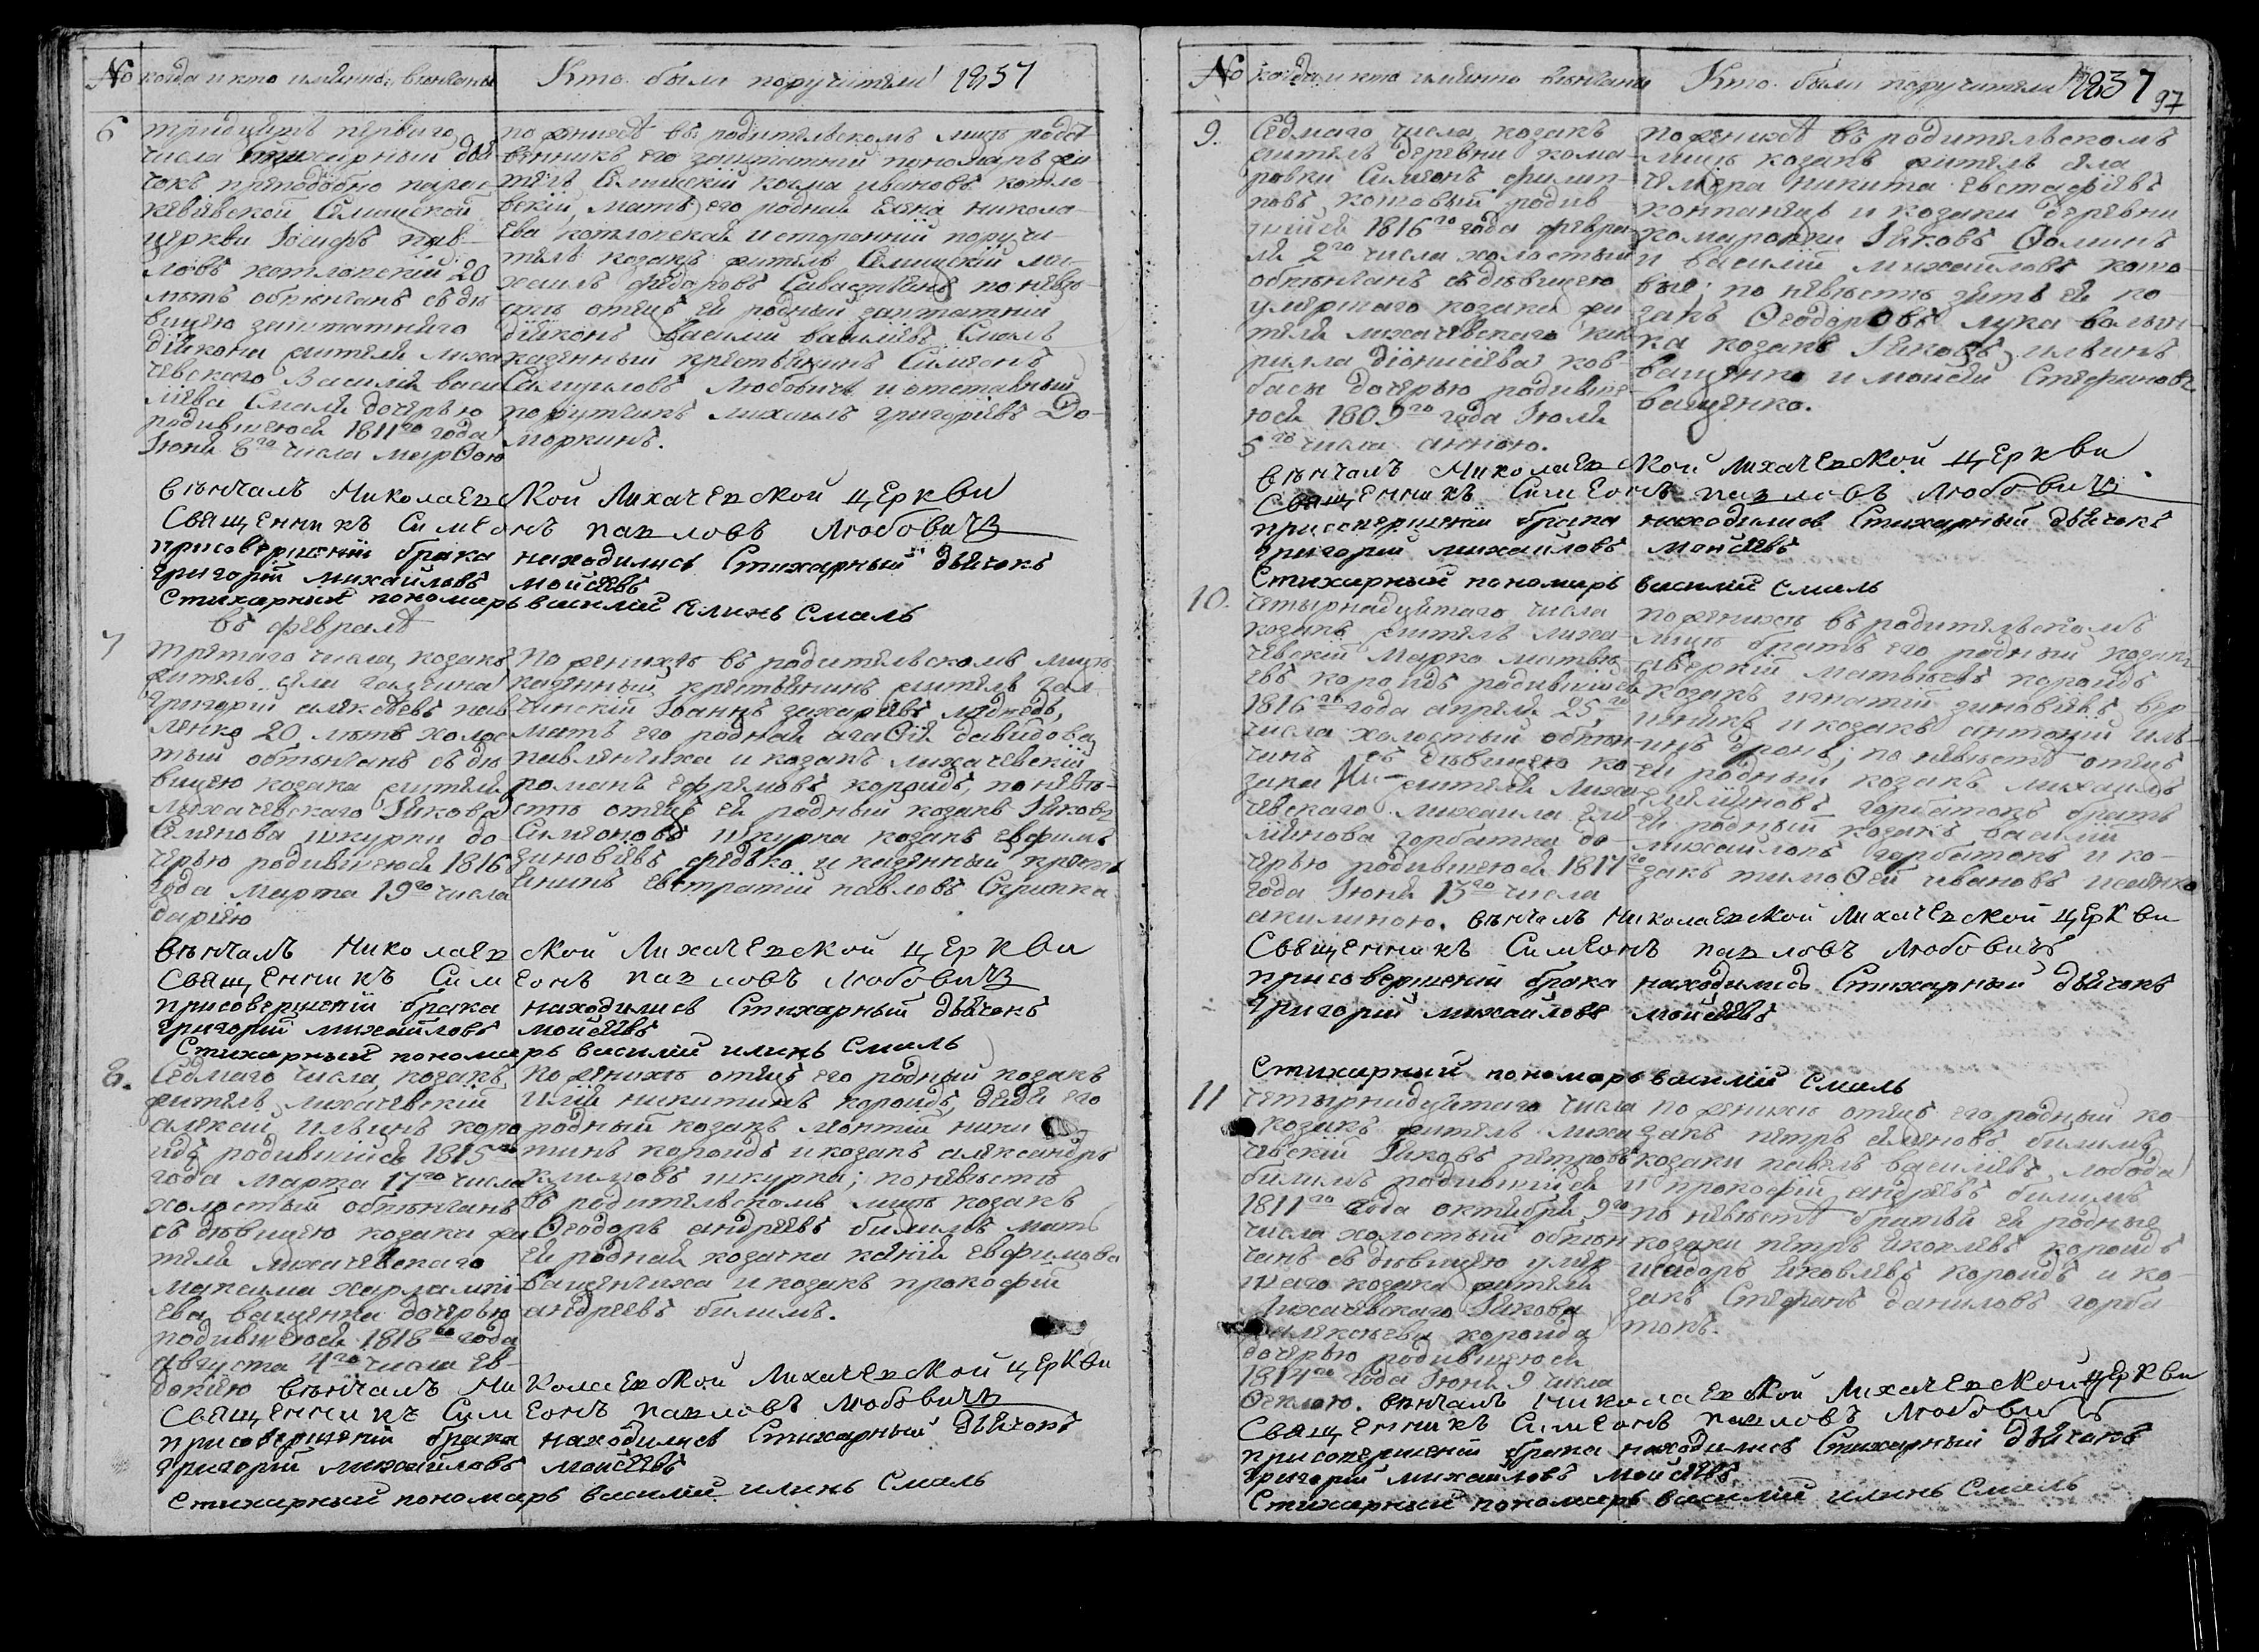 No когда и кто имянно венчаны Кто были поручители 1837
6
тридцять перваго
числа Стихарный дья
чокъ преподобно парас
кевіевской Смаиской
церкви Іосифъ пав
ловъ котловскій 20
летъ обвенчанъ съ де
вицею заштатнаго
діякона жителя лиха
чевскаго Василія васи
ліева Смаля дочерью
родившеюся 1811го года
Іюня 8го числа марѳою
по женихе въ родительскомъ лице родст
венникъ его заштатный пономарь жи
тель козма ивановъ котло
вскій, мать его родная Елена никола
ева котловская и сторонній поручи
тель козакъ житель ми
хаилъ федоровъ по неве
сте отецъ ея родный заштатный
діяконъ василій василіевъ Смаль
казенный крестьянинъ Симеонъ
Самуиловъ Любовичъ и отставный
порутчикъ михаилъ григоріевъ До
моркинъ.
венчалъ Николаевской Лихачевской церкви
Священникъ Симеонъ павловъ Любовичъ
при совершеніи брака находились Стихарный дьячокъ
григорій михайловъ мойсеевъ
Стихарный пономарь василій илинъ Смаль
въ февралѣ
7
третяго числа, козакъ
житель села галчина
григорій алексеевъ пав
ленко 20 летъ холос
тый обвенчанъ съ де
вицею козака жителя
лихачевскаго Якова
Семенова шкурки до
черью родившеюся 1816
года марта 19го числа
даріею
По женихе въ родительскомъ лице
казенный крестьянинъ житель гал
чинскій Іоаннъ захаріевъ медведь,
мать его родная агаѳія давидова
павленчиха и козакъ лихачевскій
романъ ефремовъ короидъ, по неве
сте отецъ ея родный козакъ Яковъ
Симеоновъ шкурка козакъ евфимъ
зиновіевъ федько и казенный кресть
янинъ евстратій павловъ Скрипка
венчалъ Николаевской Лихачевской церкви
Священникъ Симеонъ павловъ Любовичъ
при совершеніи брака находились Стихарный дьячокъ
григорій михайловъ мойсеевъ
Стихарный пономарь василій илинъ Смаль
8.
Седмаго числа, козакъ
житель лихачевскій
алексей ильинъ коро
идъ родившійся 1815го
года марта 17го числа
холостый обвенчанъ
съ девицею козака жи
теля лихачевскаго
максима харлампі
ева ващенка дочерью
родившеюся 1818го года
августа 4го числа ев
докіею венчалъ Николаевской Лихачевской церкви
по женихе отецъ его родный козакъ
илія никитинъ короидъ, дядя его
родный козакъ леонтій ники
тинъ короидъ и козакъ александръ
климовъ шкурка; по невесте
въ родительскомъ лице козакъ
Ѳеодоръ андреевъ билимъ мать
ея родная козачка ксенія евфимова
ващенчиха и козакъ прокофій
андреевъ билимъ.
Священникъ Симеонъ павловъ Любовичъ
при совершеніи брака находились Стихарный дьячокъ
григорій михайловъ мойсеевъ
Стихарный пономарь василій илинъ Смаль
No когда и кто имянно венчаны Кто были поручители 1837
97
9.
Седмаго числа, козакъ
житель деревни кома
ровки Симеонъ филип
повъ котовый родив
шійся 1816го года февра
ля 2го числа холостый
обвенчанъ съ девицею
умершаго козака жи
теля лихачевскаго ки
рилла діонисіева ков
басы дочерью родивше
юся 1809го года Іюля
5го числа анною.
по женихе въ родительскомъ
лице козакъ житель села
никита евстафіевъ
компанецъ и козаки деревни
комаровки Яковъ Ѳоминъ
и василій михайловъ кото
вые; по невесте зять ея ко
закъ Ѳеодоровъ лука
козакъ Яковъ ильинъ
ващенко и мойсей Стефановъ
ващенко.
венчалъ Николаевской Лихачевской церкви
Священникъ Симеонъ павловъ Любовичъ
при совершеніи брака находились Стихарный дьячокъ
григорій михайловъ мойсеевъ
Стихарный пономарь василій Смаль
10.
четырнадцятаго числа
козакъ житель лиха
чевскій Марко матве
евъ короидъ родившійся
1816го года апреля 25го
числа холостый обвен
чанъ съ девицею ко
зака жителя лиха
чевскаго михаила еме
ліянова горбатка до
черью родившеюся 1817го
года Іюня 13го числа
акилиною. венчалъ Николаевской Лихачевской церкви
по женихе въ родительскомъ
лице братъ его родный козакъ
аверкій матвеевъ короидъ
козакъ игнатій зиновіевъ вер
и козакъ антоній иль
инъ дронь; по невесте отецъ
ея родный козакъ михаилъ
емеліяновъ горбатокъ братъ
ея родный козакъ василій
михайловъ горбатокъ и ко
закъ тимоѳей ивановъ исаенко
Священникъ Симеонъ павловъ Любовичъ
при совершеніи брака находились Стихарный дьячокъ
григорій михайловъ мойсеевъ
Стихарный пономарь василій Смаль
11
четырнадцятаго числа
козакъ житель лиха
чевскій Яковъ петровъ
билимъ родившійся
1811го года октября 9го
числа холостый обвен
чанъ съ девицею умер
шаго козака жителя
лихачевскаго Якова
алексеева короида
дочерью родившеюся
1814го года Іюня 9 числа
Ѳеклою. венчалъ Николаевской Лихачевской церкви
по женихе отецъ его родный ко
закъ петръ семеновъ билимъ
козаки павелъ василіевъ лобода
и прокофій андреевъ билимъ
по невесте братья ея родные
козаки петръ яковлевъ короидъ
исидоръ яковлевъ короидъ и ко
закъ Стефанъ даниловъ горба
токъ.
Священникъ Симеонъ павловъ Любовичъ
при совершеніи брака находились Стихарный дьячокъ
григорій михайловъ мойсеевъ
Стихарный пономарь василій илинъ Смаль